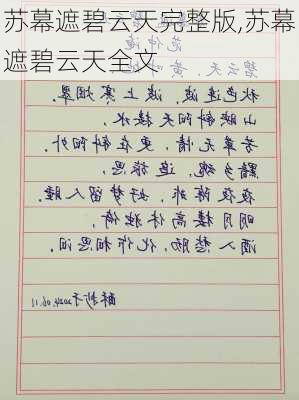 苏幕遮碧云天完整版,苏幕
遮碧云天全文
范仲淹
碧云天,黄叶地,
秋色连波,波上寒烟翠。
山映斜阳天接水,
芳草无情,更在斜阳外。
黯乡魂,追旅思,
夜夜除非,好梦留人睡。
明月楼高休独倚,
酒入愁肠,化作相思泪。
2024.06.11